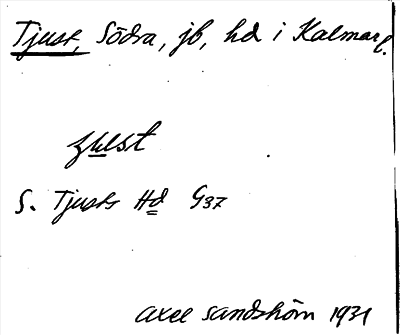 Tjust, Södra, jb, hd i Kalmar l.
S. Tjusts Hd G37
Axel Sandström 1931